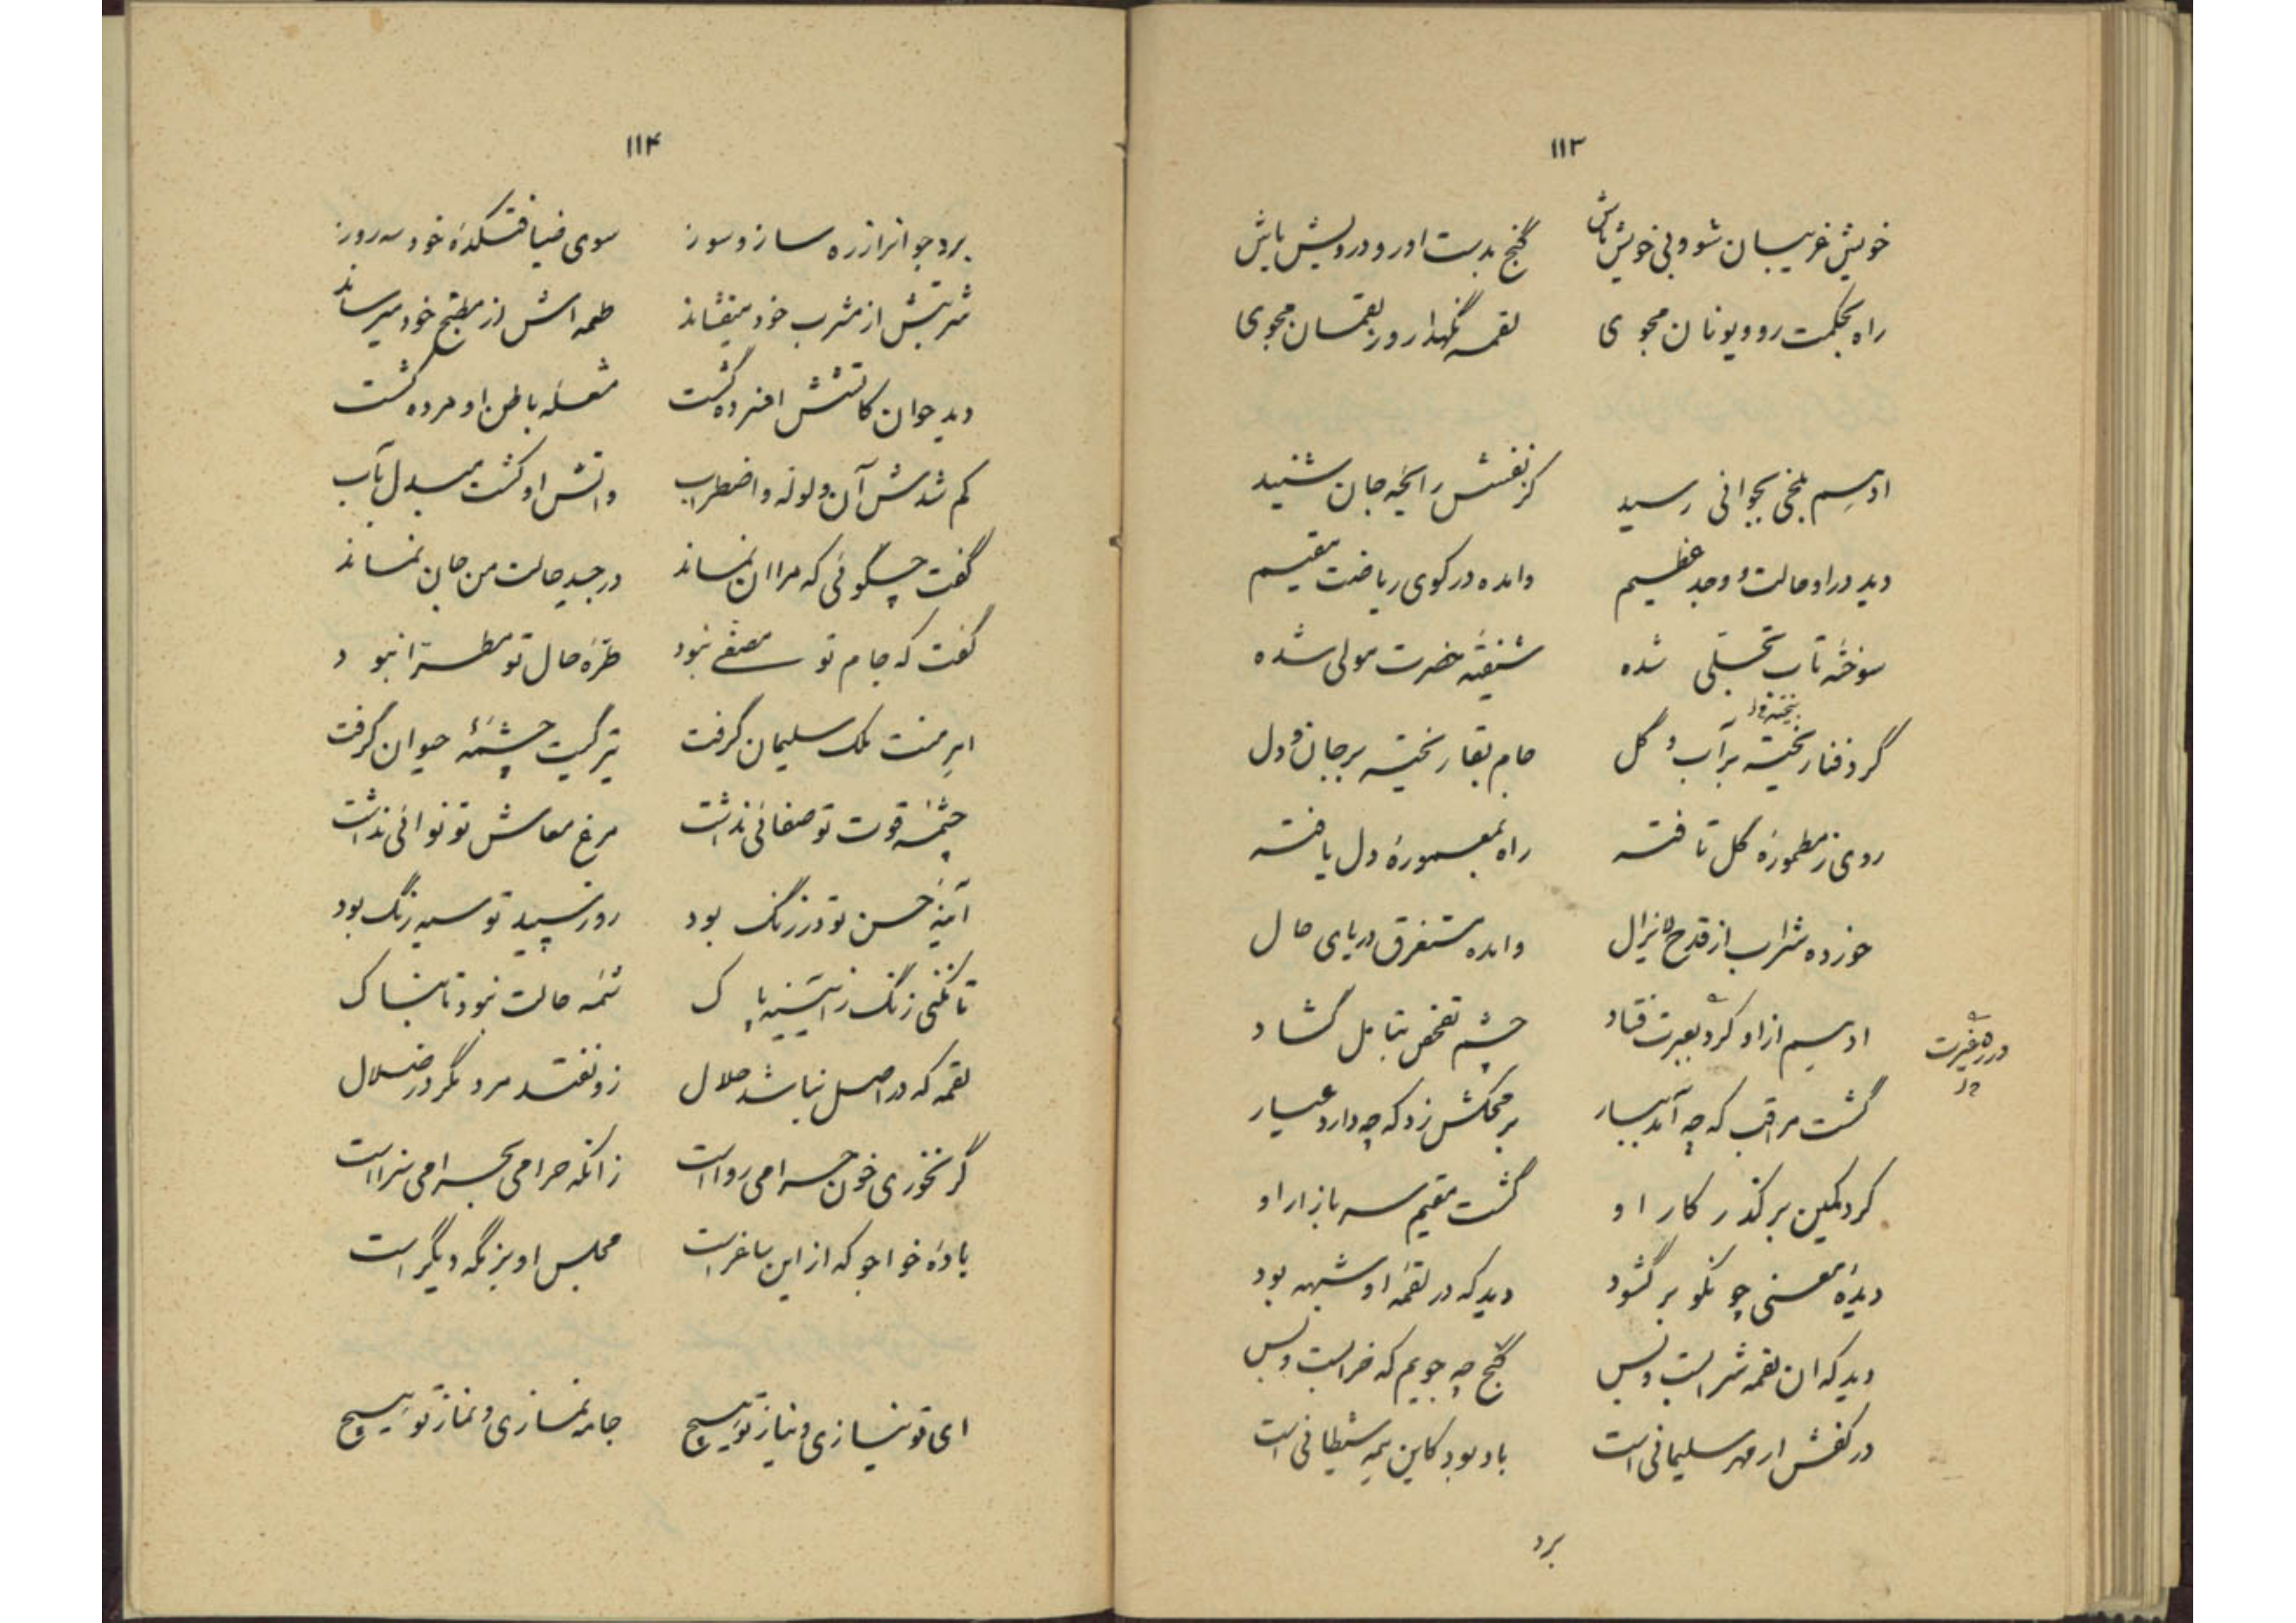 ۱۱۳
خویش غریبان شو و بی خویش باش گنج بدست اور و درویش باش
راه بحکمت رو و یونان مجوی لقمه نگهدار و ز لقمان مجوی
ادهم بلخی بجوانی رسید کز نفسش رایحه جان شنید
دید در او حالت و وجد عظیم وامده در کوی ریاضت مقیم
سوخته تاب تجلی شده شیفته حضرت مولی شده
گرد فنا ریخته بر آب و گل جام بقا ریخته بر جان و دل
روی ز مطموره گل تافته راه بمعموره دل یافته
خورده شراب از قدح لایزال وامده مستغرق دریای حال
ادهم از او کرد بعبرت فتاد چشم تفحص بتامل گشاد
در ره غیرت
گشت مراقب که چه آمد ببار بر محکش زد که چه دارد عیار
کرد کمین بر گذر کار او گشت مقیم سر بازار او
دیده معنی چو نکو بر گشود دید که در لقمه او شبهه بود
دید که ان لقمه شر است و بس گنج چه جویم که خرابست و بس
در کفش ار مهر سلیمانی است باد بود کاین همه شیطانی است
برد
۱۱۴
برد جوانرا ز ره ساز و سوز سوی ضیافتکده خود سه روز
شربتش از مشرب خود میفشاند طعمه اش از مطبخ خود میرساند
دید جوان کاتشش افسرده گشت مشعله باطن او مرده گشت
کم شدش آن ولوله و اضطراب واتش او گشت مبدل بآب
گفت چگوئی که مرا ان نماند در جسد حالت من جان نماند
گفت که جام تو مصفی نبود طره حال تو مطرا نبود
ابر منت ملک سلیمان گرفت تیرگیت چشمه حیوان گرفت
چشمه قوت تو صفائی نداشت مرغ معاش تو نوائی نداشت
آینه حسن تو در زنگ بود روز سپید تو سیه رنگ بود
تا نکنی زنگ ز آیینه پاک شمه حالت نبود تابناک
لقمه که در اصل نباشد حلال زو نفتد مرد مگر در ضلال
گر نخوری خون حرامی رواست زانکه حرامی بحرامی سزااست
باده خواجو که از این ساغر است مجلس او بزمگه دیگر است
ای تو نیازی و نیاز تو هیچ جامه نمازی و نماز تو هیچ